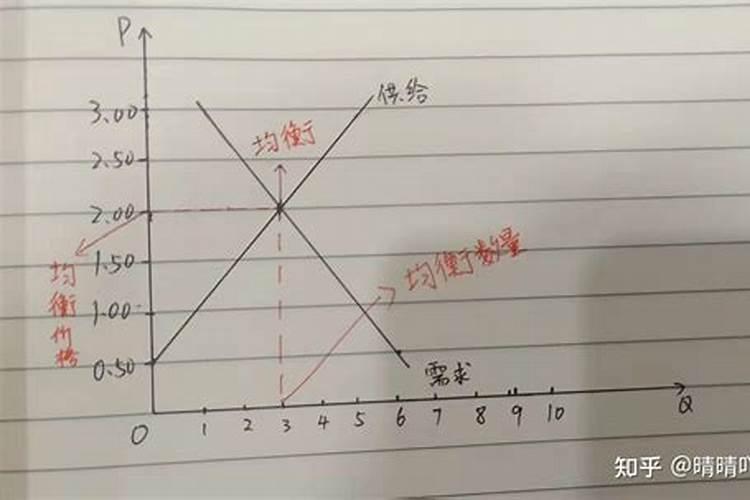 P
供给
3.00
均衡
2.50
2.00
均衡数量
1.50
均衡价格
1.00
0.50
需求
0 1 2 3 4 5 6 7 8 9 10 Q
知乎 @晴晴吖